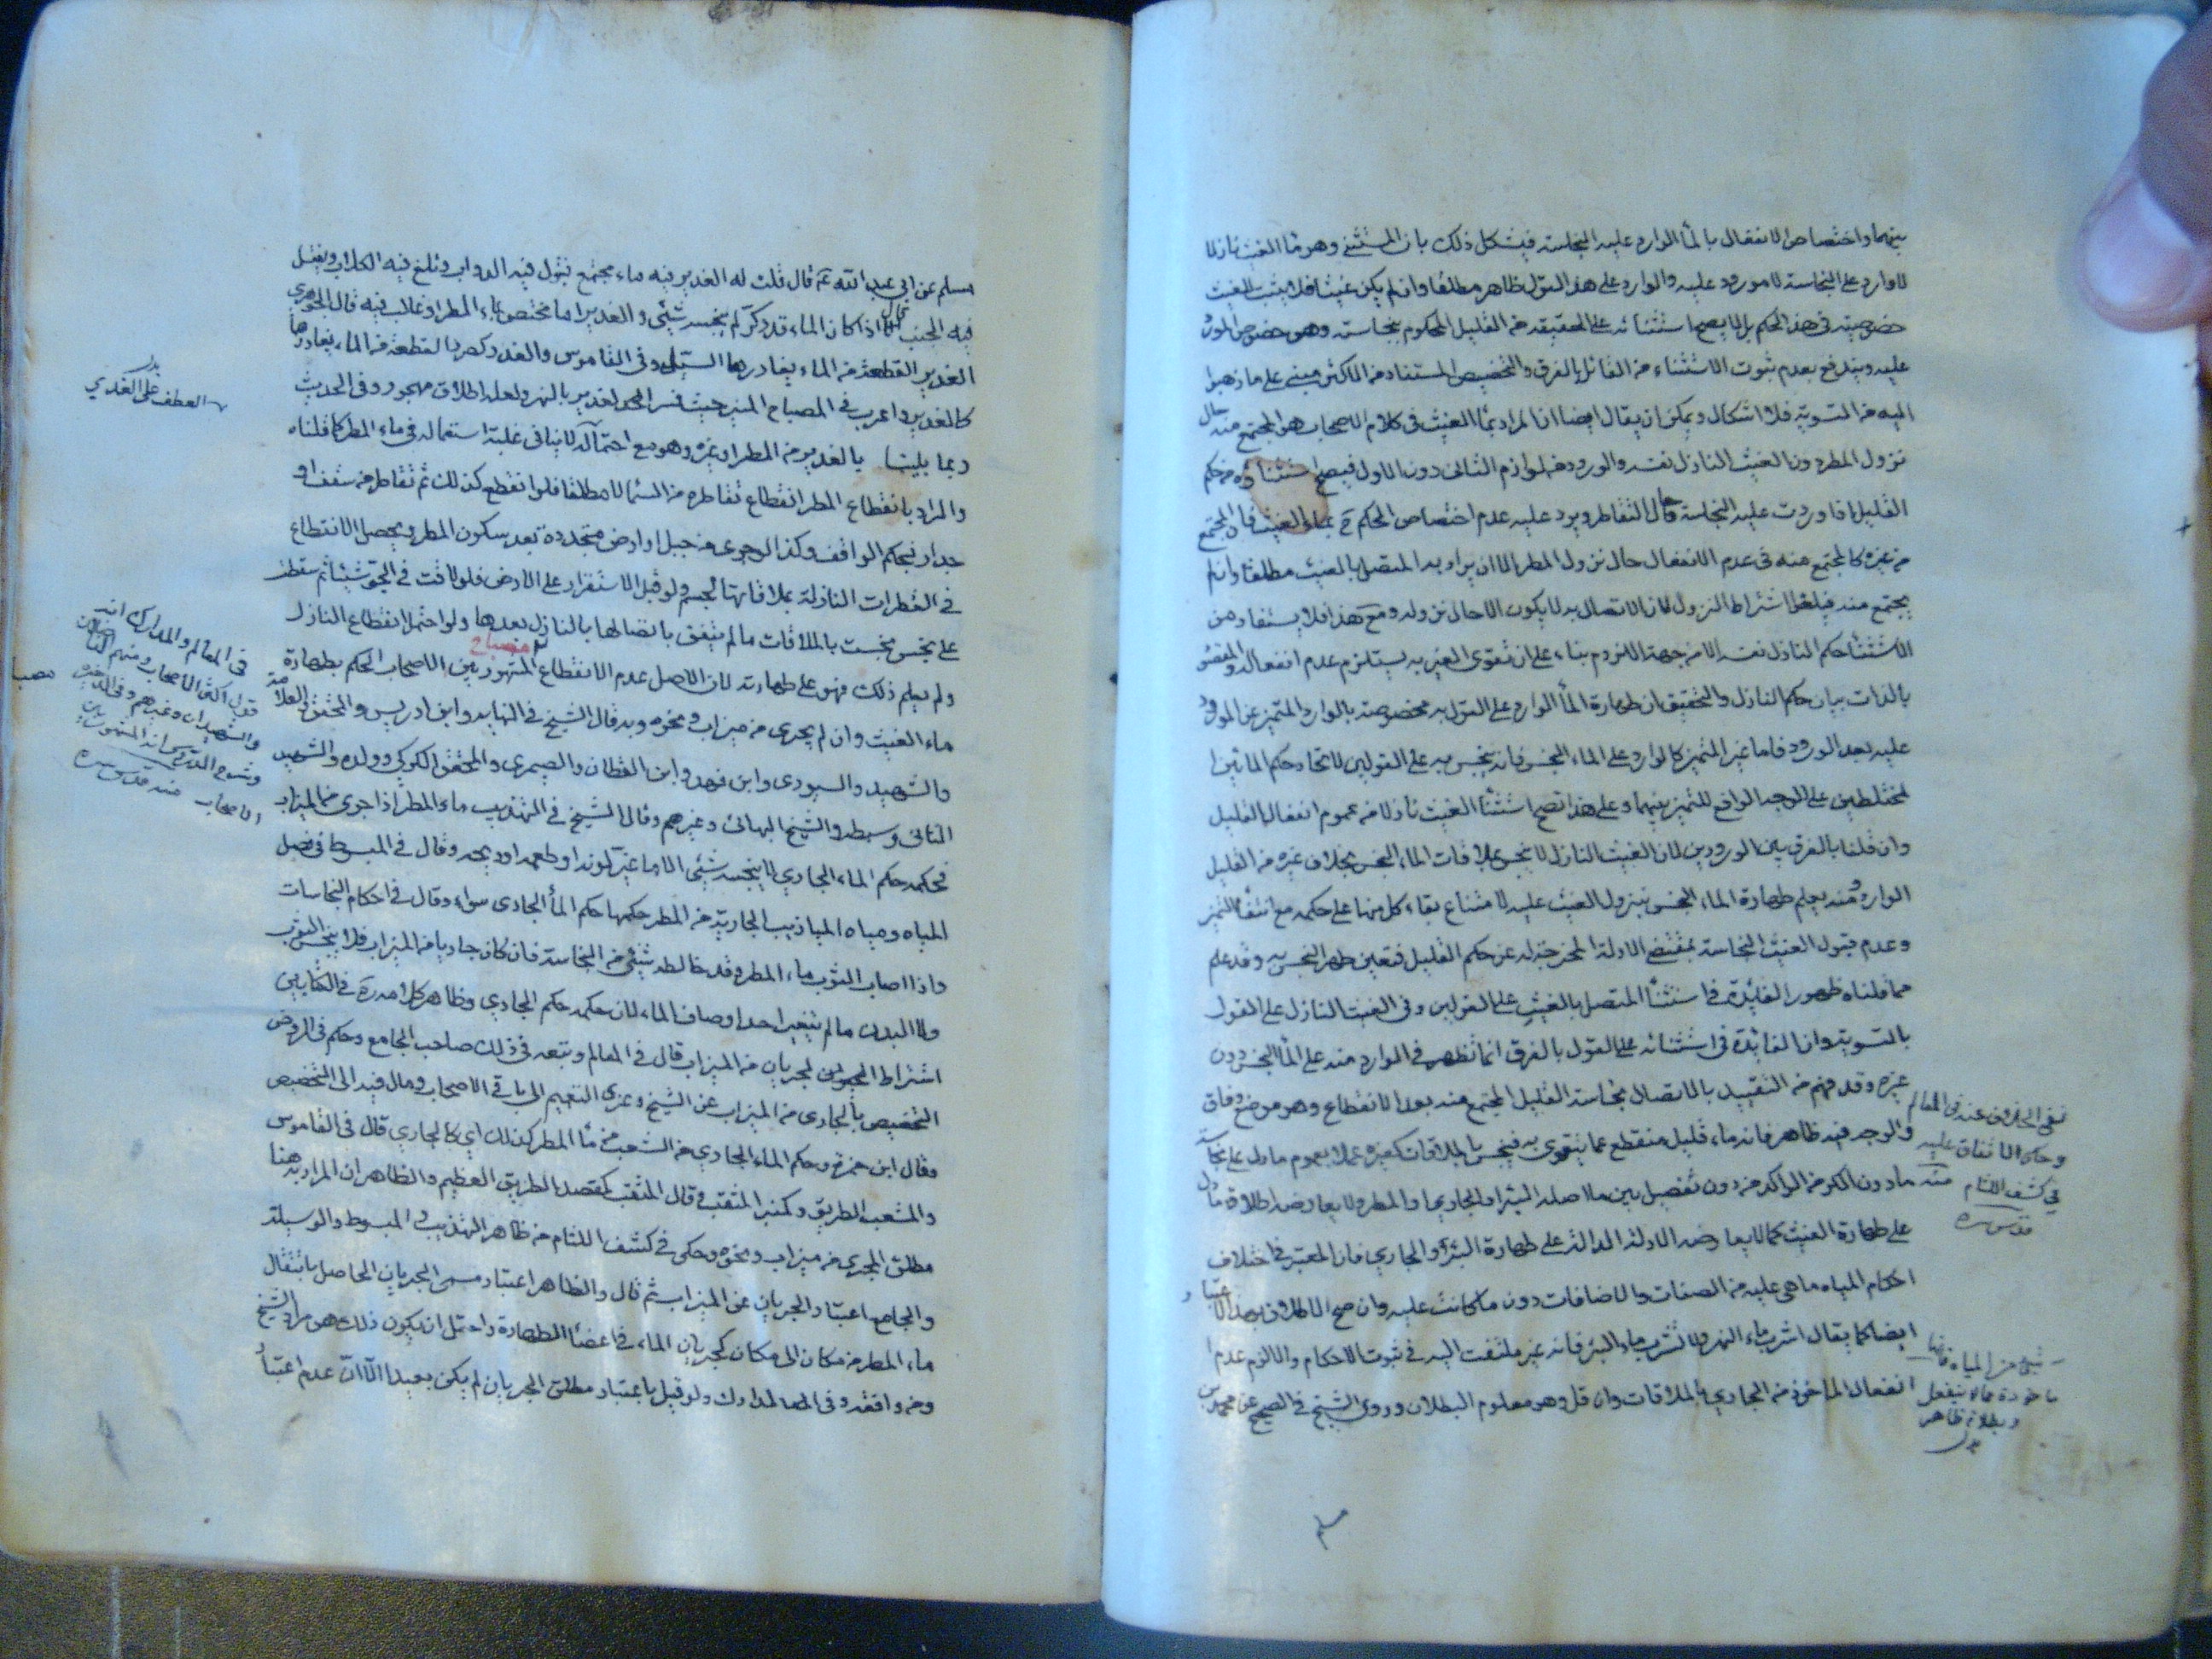 بينهما واختصاص الانفعال بالماء الوارد عليه النجاسة فيشكل ذلك بان المستثنى وهو ماء الغيث نازلا
لا وارد على النجاسة لا مورود عليه والوارد على هذا القول طاهر مطلقا وان لم يكن غيثا فلا يثبت للغيث
خصوصية في هذا الحكم بل لا يصح استثنائه على الحقيقة من القليل المحكوم بنجاسته وهو خصوص المورود
عليه ويندفع بعدم ثبوت الاستثناء من القائل بالفرق والتخصيص المستفاد من الاكثر مبني على ما ذهبوا
اليه من التسوية فلا اشكال ويمكن ان يقال ايضا ان المراد بماء الغيث في كلام الاصحاب هو المجتمع منه حال
نزول المطر دون الغيث النازل نفسه والورود من لوازم الثاني دون الاول فيصح استثناؤه من حكم
القليل اذا وردت عليه النجاسة حال التقاطر ويرد عليه عدم اختصاص الحكم ح بماء الغيث فان المجتمع
من غيره كالمجتمع منه في عدم الانفعال حال نزول المطر الا ان يراد به المتصل بالغيث مطلقا وان لم
يجتمع منه فيلغوا اشتراط النزول لان الاتصال به لا يكون الا حال نزوله ومع هذا فلا يستفاد من
الاستثناء حكم النازل نفسه الا من جهة اللزوم بناء على ان تقوى الغير به يستلزم عدم انفعاله والمقصود
بالذات بيان حكم النازل والتحقيق ان طهارة الماء الوارد على القول به مخصوصة بالوارد المتميز عن المورود
عليه بعد الورود فاما غير المتميز كالوارد على الماء النجس فانه ينجس به على القولين لاتحاد حكم المائين
المختلطين على الوجه الرافع للتميز بينهما وعلى هذا تصح استثناء الغيث نازلا من عموم انفعال القليل
وان قلنا بالفرق بين الورودين لان الغيث النازل لا ينجس بملاقات الماء النجس بخلاف غيره من القليل
الوارد ومنه يعلم طهارة الماء النجس بنزول الغيث عليه لامتناع بقاء كل منهما على حكمه مع انتفاء التميز
وعدم قبول الغيث النجاسة بمقتضى الادلة المخرجة له عن حكم القليل فتعين طهر النجس به وقد علم
مما قلناه ظهور الفائدة في استثناء المتصل بالغيث على القولين وفي الغيث النازل على القول
بالتسوية وان الفائدة في استثنائه على القول بالفرق انما تظهر في الوارد منه على الماء النجس دون
غيره وقد فهم من التقييد بالاتصال نجاسة القليل المجتمع منه بعد الانقطاع وهو موضع وفاق
والوجه فيه ظاهر فانه ماء قليل منقطع عما يتقوى به فينجس بالملاقات كغيره عملا بعموم ما دل على نجاسة
ما دون الكر من الراكد من دون تفصيل بين ما اصله البئر او الجاري او المطر ولا يعارضه اطلاق ما دل
على طهارة الغيث كما لا يعارضه الادلة الدالة على طهارة البئر والجاري فان المعتبر في اختلاف
احكام المياه ما هي عليه من الصفات والاضافات دون ما كانت عليه وان صح الاطلاق بهذا الاعتبار
ايضا كما يقال اشرب ماء النهر ولا تشرب ماء البئر فانه غير ملتفت اليه في ثبوت الاحكام والا لزم عدم
انفعال الماخوذ من الجاري بالملاقات وان قل وهو معلوم البطلان وروى الشيخ في الصحيح عن محمد بن
نفى الخلاف عنه في المعالم
وحكى الاتفاق عليه
في كشف اللثام منه
قدس سره
شيئ من المياه فانها
ماخوذة مما لا ينفعل
وبطلانه ظاهر
مسلم
مسلم عن ابي عبد الله ع قال قلت له الغدير فيه ماء مجتمع تبول فيه الدواب وتلغ فيه الكلاب ويغتسل
فيه الجنب قال اذا كان الماء قدر كر لم ينجسه شيئ والغدير اما مختص بماء المطر او غالب فيه قال الجوهري
الغدير القطعة من الماء يغادرها السيل وفي القاموس والغدر كصرد القطعة من الماء يغادرها
كالغدير واغرب في المصباح المنير حيث فسر الغدير بالنهر ولعله اطلاق مهجور وفي الحديث
ربما يلينا بالغدير من المطر او غيره وهو مع احتماله لا ينافي غلبة استعماله في ماء المطر كما قلناه
والمراد بانقطاع المطر انقطاع تقاطره من السماء لا مطلقا فلو انقطع كذلك ثم تقاطر من سقف او
جدار فبحكم الواقف وكذا لو جرى من جبل او ارض متجددة بعد سكون المطر ويحصل الانقطاع
في القطرات النازلة بملاقاتها لجسم ولو قبل الاستقرار على الارض فلو لاقت في الجو شيئا ثم سقطت
على نجس نجست بالملاقات ما لم يتفق باتصالها بالنازل بعدها ولو احتمل انقطاع النازل
ولم يعلم ذلك فهو على طهارته لان الاصل عدم الانقطاع مصباح المشهور بين الاصحاب الحكم بطهارة
ماء الغيث وان لم يجرى من ميزاب ونحوه وبه قال الشيخ في النهاية وابن ادريس والمحقق والعلامة
والشهيد والسيورى وابن فهد وابن القطان والصيمري والمحقق الكركي وولده والشهيد
الثاني وسبطه والشيخ البهائى وغيرهم وقال الشيخ في التهذيب ماء المطر اذا جرى من الميزاب
فحكمه حكم الماء الجاري لا ينجسه شيئ الا ما غير لونه او طعمه او ريحه وقال في المبسوط في فصل
المياه ومياه الميازيب الجارية من المطر حكمها حكم الماء الجاري سواء وقال في احكام النجاسات
واذا اصاب الثوب ماء المطر وقد خالطه شيئ من النجاسة فان كان جاريا من الميزاب فلا ينجس الثوب
ولا البدن ما لم يتغير احد اوصاف الماء لان حكمه حكم الجاري وظاهر كلامه ره في الكتابين
اشتراط الجريان من الميزاب قال في المعالم وتبعه في ذلك صاحب الجامع وحكم في الروض
التخصيص بالجارى من الميزاب عن الشيخ وعزى التعميم الى باقي الاصحاب ومال فيه الى التخصيص
وقال ابن حمزة وحكم الماء الجاري من المشعب من ماء المطر كذلك اي كالجاري قال في القاموس
والمشعب الطريق وكمنبر المثقب وقال المثقب كمقعد الطريق العظيم والظاهر ان المراد به هنا
مطلق المجرى من ميزاب ونحوه وحكى في كشف اللثام من ظاهر التهذيب و المبسوط والوسيلة
والجامع اعتبار الجريان عن الميزاب ثم قال والظاهر اعتبار مسمى الجريان الحاصل بانتقال
ماء المطر من مكان الى مكان كجريان الماء في اعضاء الطهارة واحتمل ان يكون ذلك هو مراد الشيخ
ومن وافقه وفي المعالم والمدارك ولو قيل باعتبار مطلق الجريان لم يكن بعيدا الا ان عدم اعتبار
العطف على الغدير
في المعالم والمدارك انه
قول اكثر الاصحاب ومنهم الفاضلان
والشهيدان وغيرهم وفي الذخيرة
وشرح الدروس انه المشهور بين
الاصحاب منه قدس سره
مصبا